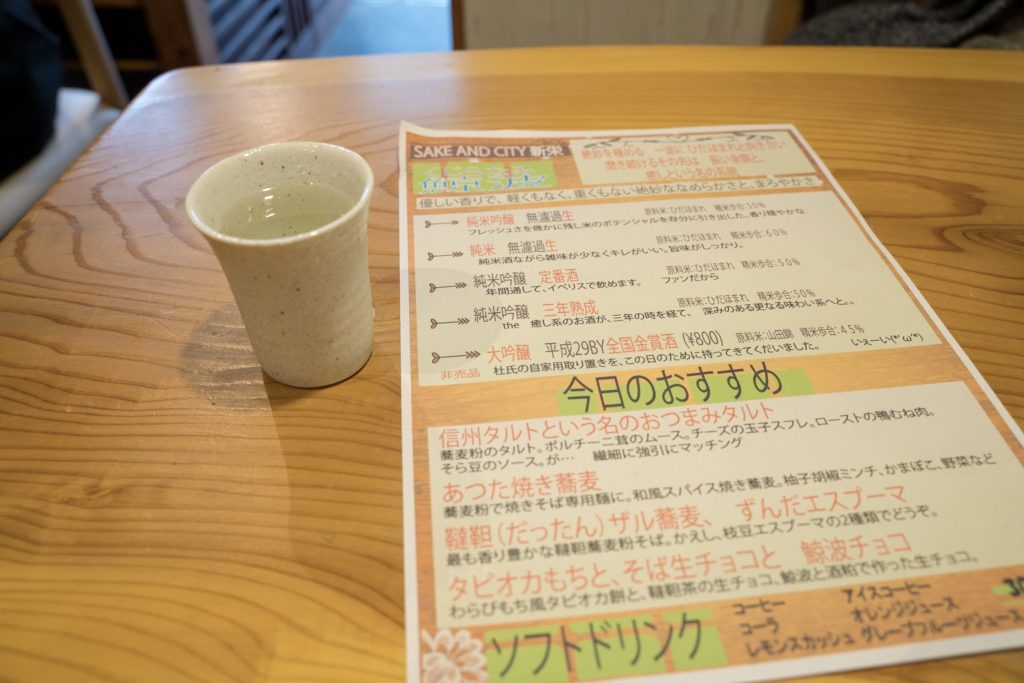 SAKE AND CITY 新栄
絶妙を極める 一途にひだほまれと向き合い
磨き続けるその先は 長い余韻と、
癒しという名の系統
優しい香りで、軽くもなく、重くもない絶妙ななめらかさと、まろやかさ
純米吟醸 無濾過生 原料米:ひだほまれ 精米歩合:50%
フレッシュさを微かに残し米のポテンシャルを存分に引き出した。香り穏やかな
純米 無濾過生 原料米:ひだほまれ 精米歩合:60%
純米酒ながら雑味が少なくキレがいい。旨味がしっかり。
純米吟醸 定番酒 原料米:ひだほまれ 精米歩合:50%
年間通して、イベリスで飲めます。 ファンだから
純米吟醸 三年熟成 原料米:ひだほまれ 精米歩合:50%
the 癒し系のお酒が、三年の時を経て、 深みのある更なる味わい系へと。。
大吟醸 平成29BY全国金賞酒(¥800) 原料米:山田錦 精米歩合:45%
非売品 杜氏の自家用取り置きを、この日のために持ってきてくだいました。 いぇーい(*'ω'*)
今日のおすすめ
信州タルトという名のおつまみタルト
蕎麦粉のタルト。ポルチーニ茸のムース。チーズの玉子スフレ。ローストの鴨むね肉。
そら豆のソース。が… 繊細に強引にマッチング
あつた焼き蕎麦
蕎麦粉で焼きそば専用麺に。和風スパイス焼き蕎麦。柚子胡椒ミンチ、かまぼこ、野菜など
韃靼(だったん)ザル蕎麦、 ずんだエスプーマ
最も香り豊かな韃靼蕎麦粉そば。かえし、枝豆エスプーマの2種類でどうぞ。
タピオカもちと、そば生チョコと 鯨波チョコ
わらびもち風タピオカ餅と、韃靼茶の生チョコ、鯨波と酒粕で作った生チョコ。
ソフトドリンク
コーヒー アイスコーヒー 30
コーラ オレンジジュース
レモンスカッシュ グレープフルーツジュース